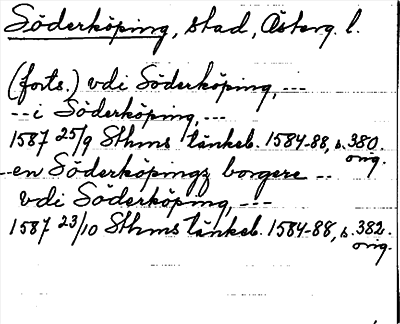 Söderköping, stad, Österg. l.
(forts.) vdi Söderköping, ---
--i Söderköping, ---
1587 25/9 Sthms tänkeb. 1584-88, s. 380.
orig.
--en Söderköpingz borgere --
vdi Söderköping, ---
1587 23/10 Sthms tänkeb. 1584-88, s. 382.
orig.